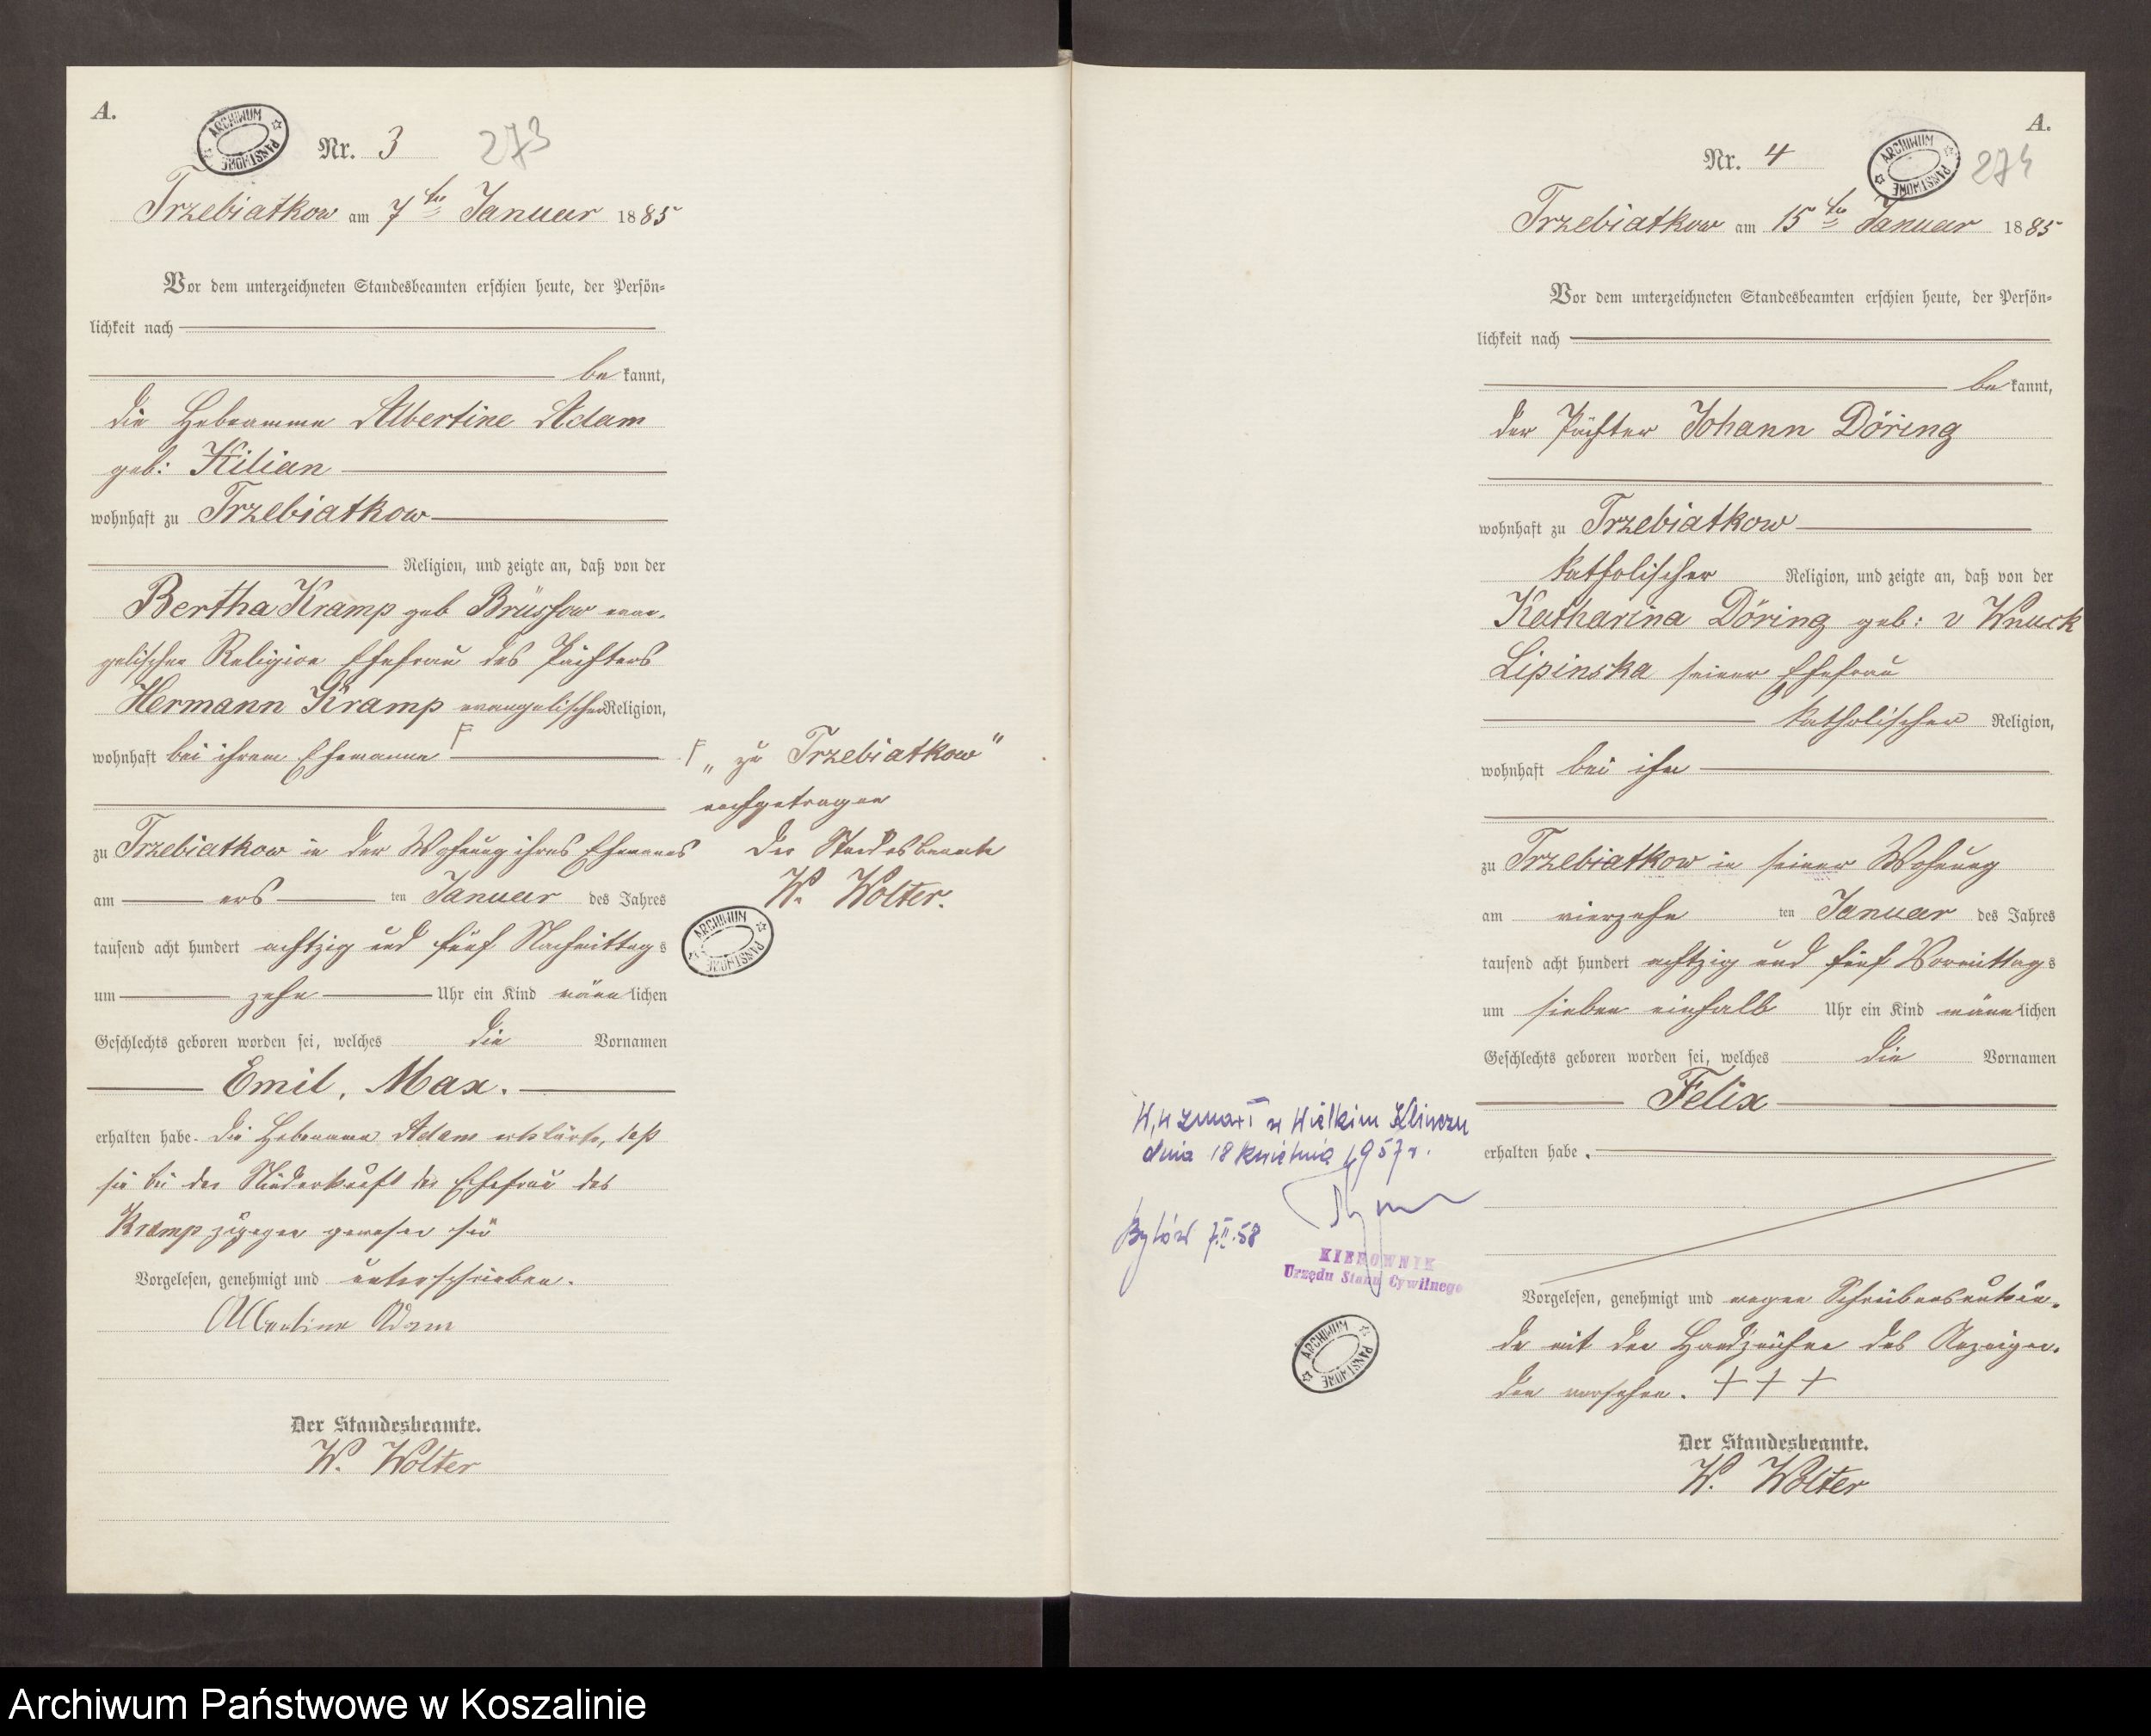 A.
ARCHIWUM PAŃSTWOWE
Nr. 3
273
Trzebiatkow am 7ten Januar 1885
Vor dem unterzeichneten Standesbeamten erschien heute, der Persön-
lichkeit nach
bekannt,
die Hebeamme Albertine Adam
geb: Kilian
wohnhaft zu Trzebiatkow
Religion, und zeigte an, daß von der
Bertha Kramp geb Brüssow evan-
gelischer Religion Ehefrau des Pächters
Hermann Kramp evangelischer Religion,
wohnhaft bei ihrem Ehemanne F
zu Trzebiatkow in der Wohnung ihres Ehemannes
am ers ten Januar des Jahres
tausend acht hundert achtzig und fünf Nachmittags
um zehn Uhr ein Kind männlichen
Geschlechts geboren worden sei, welches die Vornamen
Emil, Max.
erhalten habe. Die Hebeamme Adam erklärte, daß
sie bei der Niederkunft der Ehefrau des
Kramp zugegen gewesen sei
Vorgelesen, genehmigt und unterschrieben.
Albertine Adam
Der Standesbeamte.
W. Wolter
F „zu Trzebiatkow"
nachgetragen
Der Standesbeamte
W. Wolter.
ARCHIWUM PAŃSTWOWE
A.
Nr. 4
ARCHIWUM PAŃSTWOWE
274
Trzebiatkow am 15ten Januar 1885
Vor dem unterzeichneten Standesbeamten erschien heute, der Persön-
lichkeit nach
bekannt,
der Pächter Johann Döring
wohnhaft zu Trzebiatkow
katholischer Religion, und zeigte an, daß von der
Katharina Döring geb: v Wnuck
Lipinska seiner Ehefrau
katholischer Religion,
wohnhaft bei ihm
zu Trzebiatkow in seiner Wohnung
am vierzehn ten Januar des Jahres
tausend acht hundert achtzig und fünf Vormittags
um sieben einhalb Uhr ein Kind männlichen
Geschlechts geboren worden sei, welches die Vornamen
Felix
erhalten habe.
Vorgelesen, genehmigt und wegen Schreibensunkun-
de mit den Handzeichen des Anzeigen-
den versehen. + + +
Der Standesbeamte.
W. Wolter
W,w zmarł w Wielkim Klinczu
dnia 18 kwietnia 1957 r.
Bytów 7.II.58
KIEROWNIK
Urzędu Stanu Cywilnego
ARCHIWUM PAŃSTWOWE
Archiwum Państwowe w Koszalinie